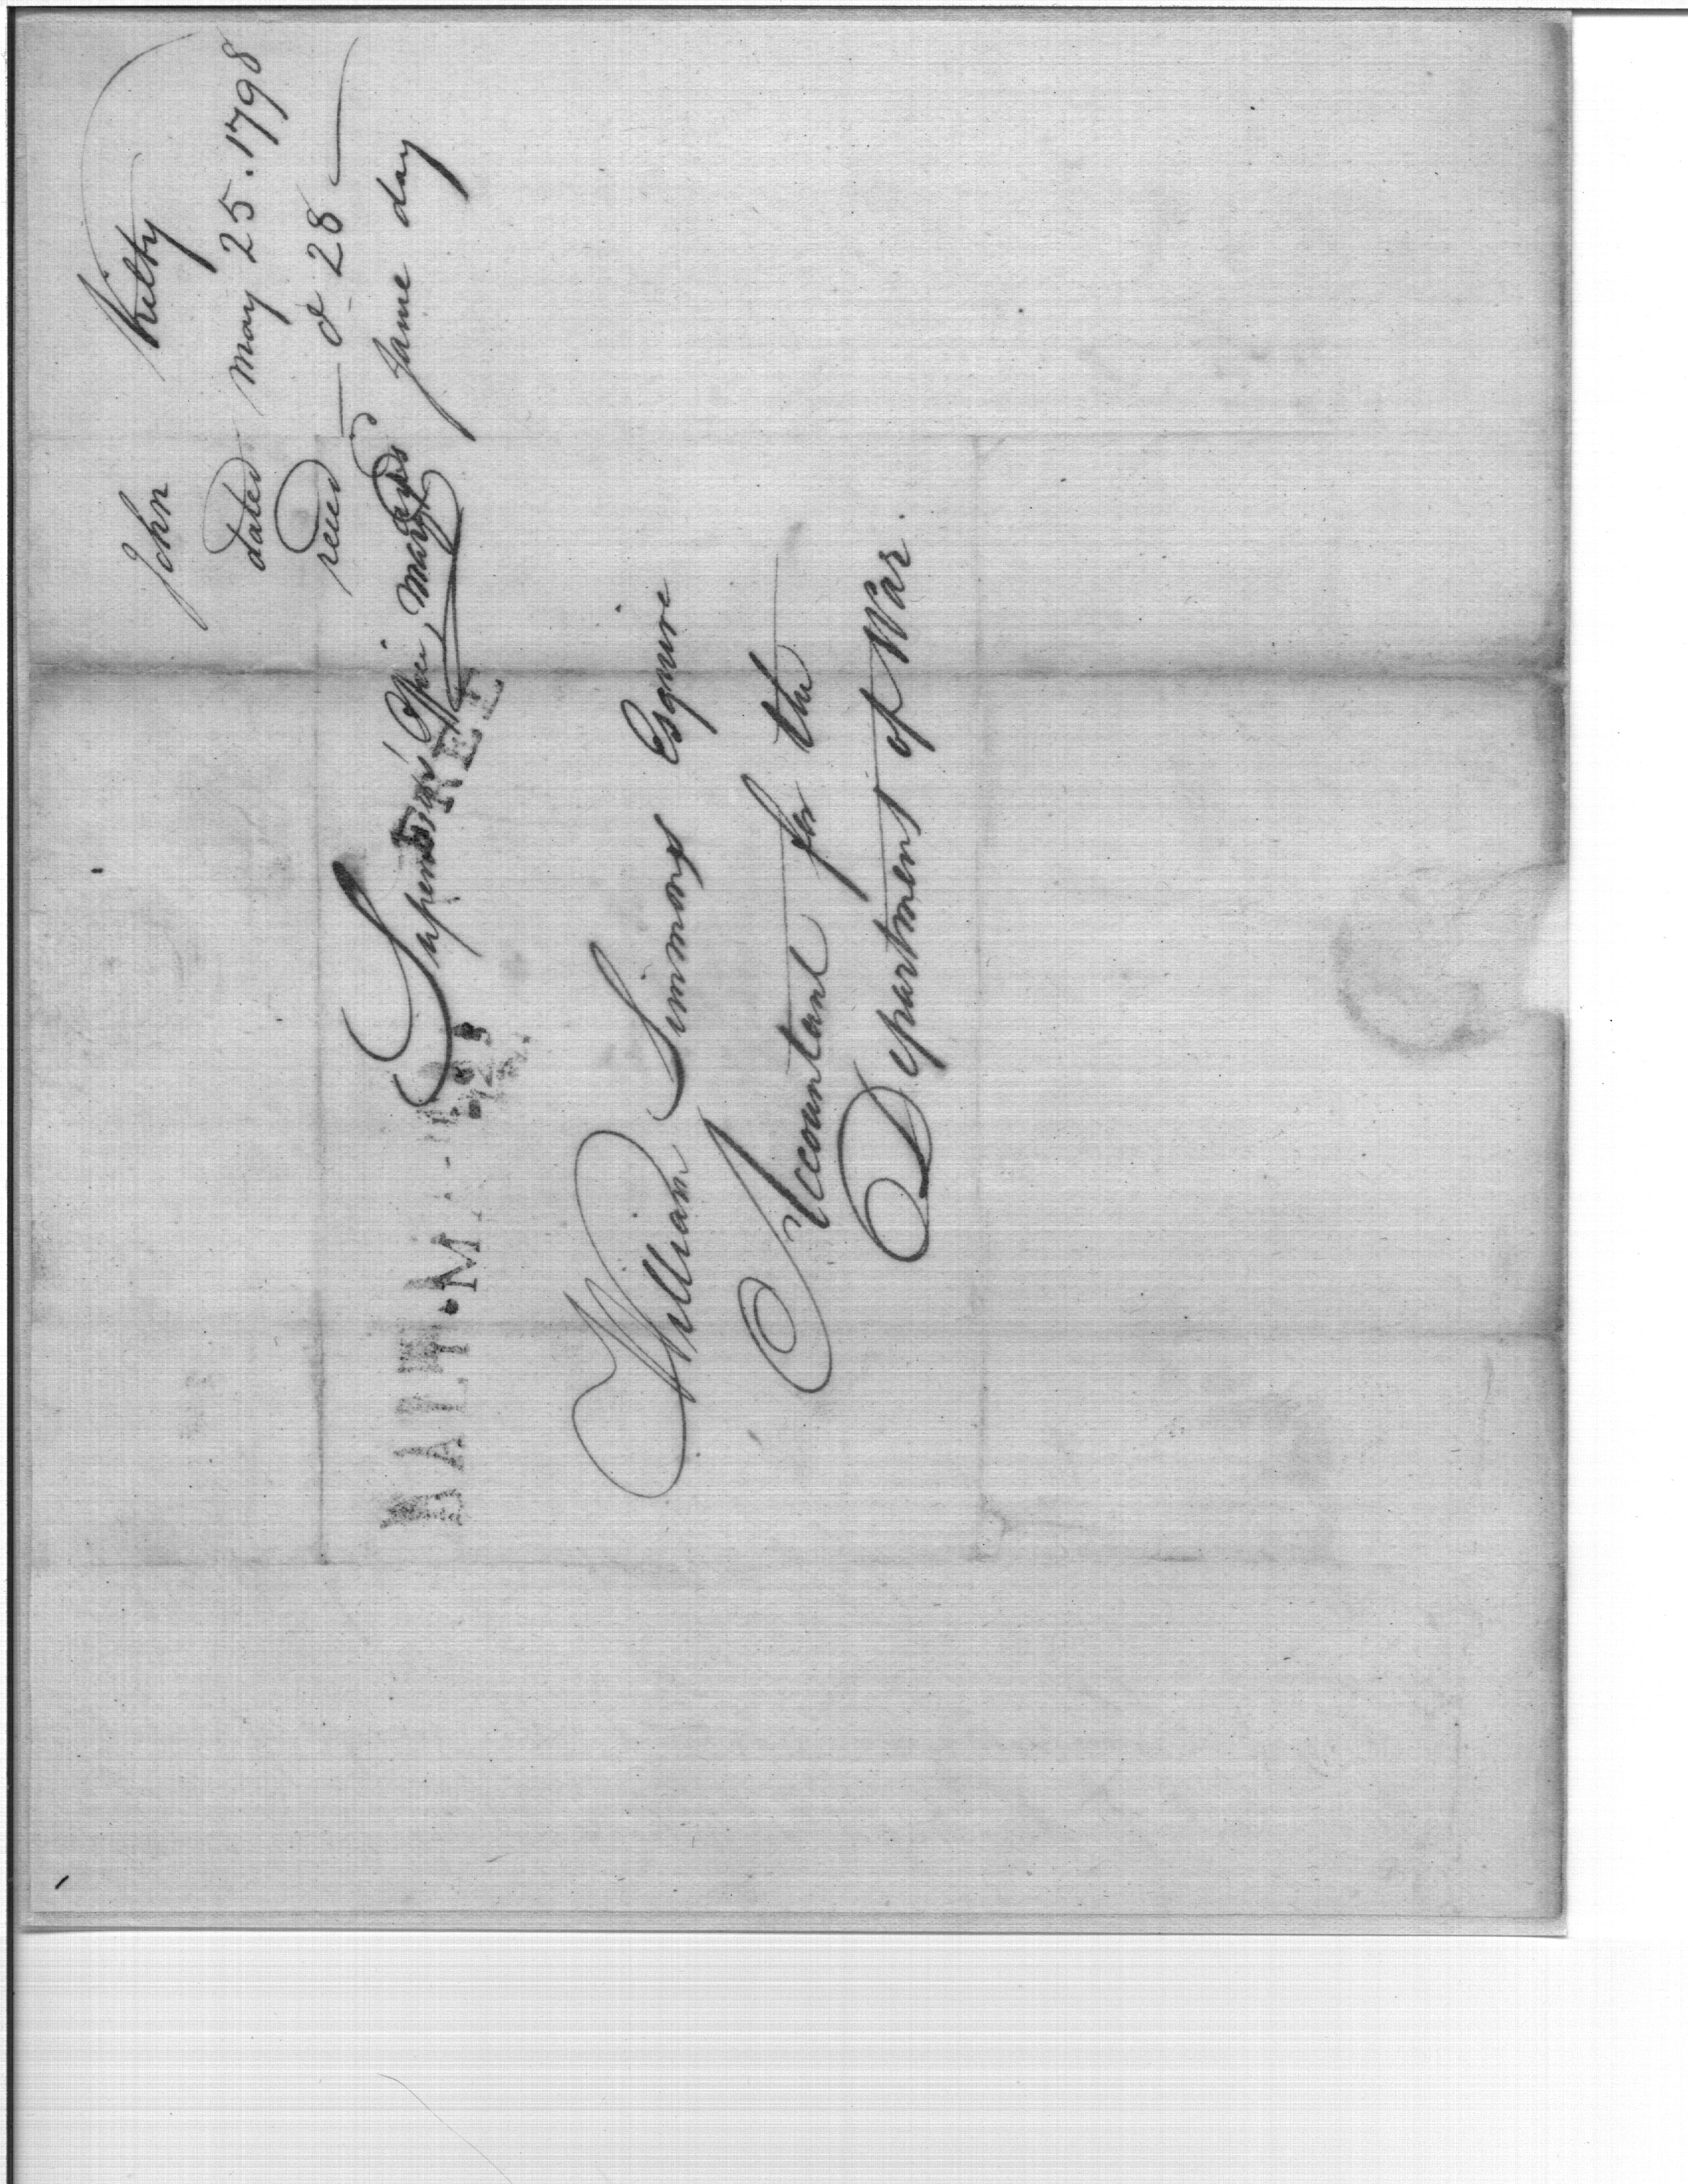 John Kilty
dated May 25. 1798
reced — do 28 —
ansd same day
Supervisor's Office, Maryd
FREE
BALT. M
William Simmons Esquire
Accountant for the
Department of War.